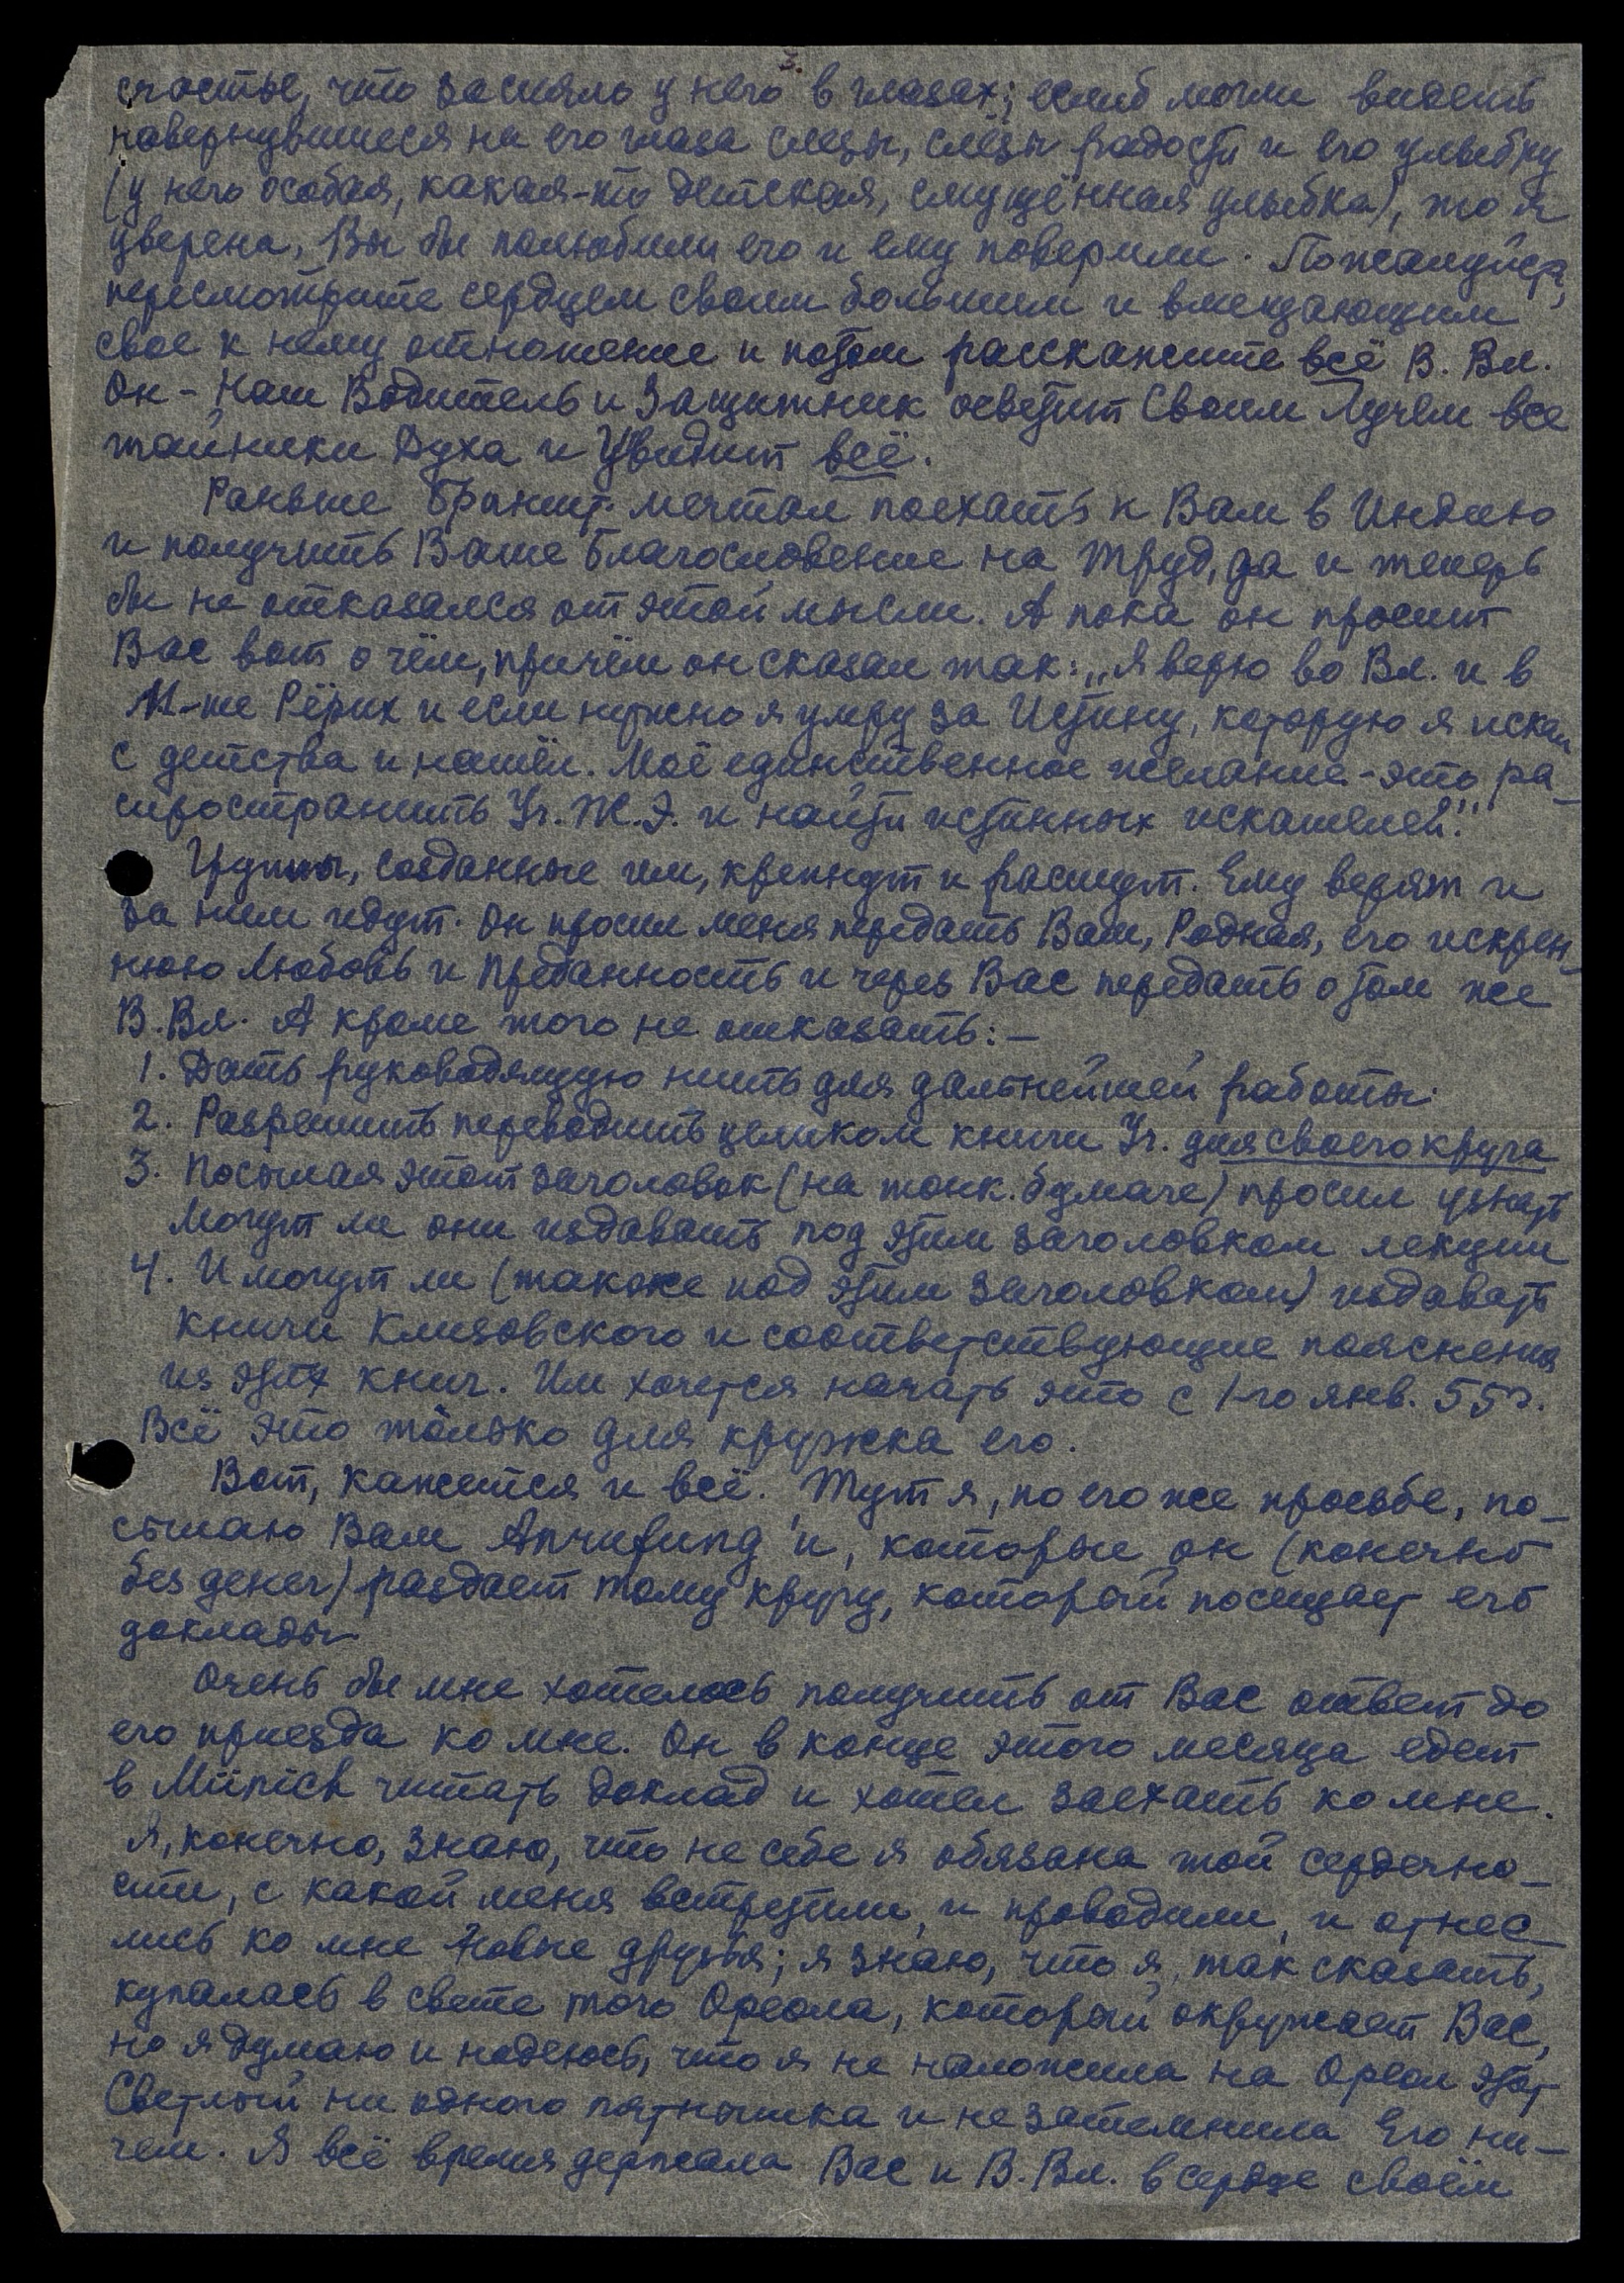 3.
счастье, что засияло у него в глазах; еслиб могли видеть
навернувшиеся на его глаза слезы, слёзы радости и его улыбку
(у него особая, какая-то детская, смущённая улыбка), то я
уверена, Вы бы полюбили его и ему поверили. Пожалуйста,
пересмотрите сердцем своим большим и вмещающим
свое к нему отношение и потом расскажите всё В. Вл.
Он - Наш Водитель и Защитник осветит Своим Лучём все
тайники Духа и Увидит всё.
Раньше Бранит. мечтал поехать к Вам в Индию
и получить Ваше Благословение на труд, да и теперь
бы не отказался от этой мысли. А пока он просит
Вас вот о чём, причём он сказал так: „Я верю во Вл. и в
М-те Рёрих и если нужно я умру за Истину, которую я искал
с детства и нашёл. Моё единственное желание - это ра-
спространить Уч. Ж.Э. и найти истинных искателей."
Группы, созданные им, крепнут и растут. Ему верят и
за ним идут. Он просил меня передать Вам, Родная, его искрен-
нюю Любовь и Преданность и через Вас передать о том же
В. Вл. А кроме того не отказать: —
1. Дать руководящую нить для дальнейшей работы.
2. Разрешить переводить целиком книги Уч. для своего круга
3. Посылая этот заголовок (на тонк. бумаге) просил узнать
могут ли они издавать под этим заголовком лекции
4. И могут ли (также под этим заголовком) издавать
книги Клизовского и соответствующие пояснения
из этих книг. Им хочется начать это с 1-го янв. 55 г.
Всё это только для кружка его.
Вот, кажется и всё. Тут я, по его же просьбе, по-
сылаю Вам и, которые он (конечно
без денег) раздает тому кругу, который посещает его
доклады
Очень бы мне хотелось получить от Вас ответ до
его приезда ко мне. Он в конце этого месяца едет
в Münich читать доклад и хотел заехать ко мне.
Я, конечно, знаю, что не себе я обязана той сердечно-
сти, с какой меня встретили, и проводили, и отнес-
лись ко мне Новые друзья; я знаю, что я, так сказать,
купалась в свете того Ореола, который окружает Вас,
но я думаю и надеюсь, что я не наложила на Ореол этот
Светлый ни одного пятнышка и не затемнила Его ни-
чем. Я всё время держала Вас и В. Вл. в сердце своём